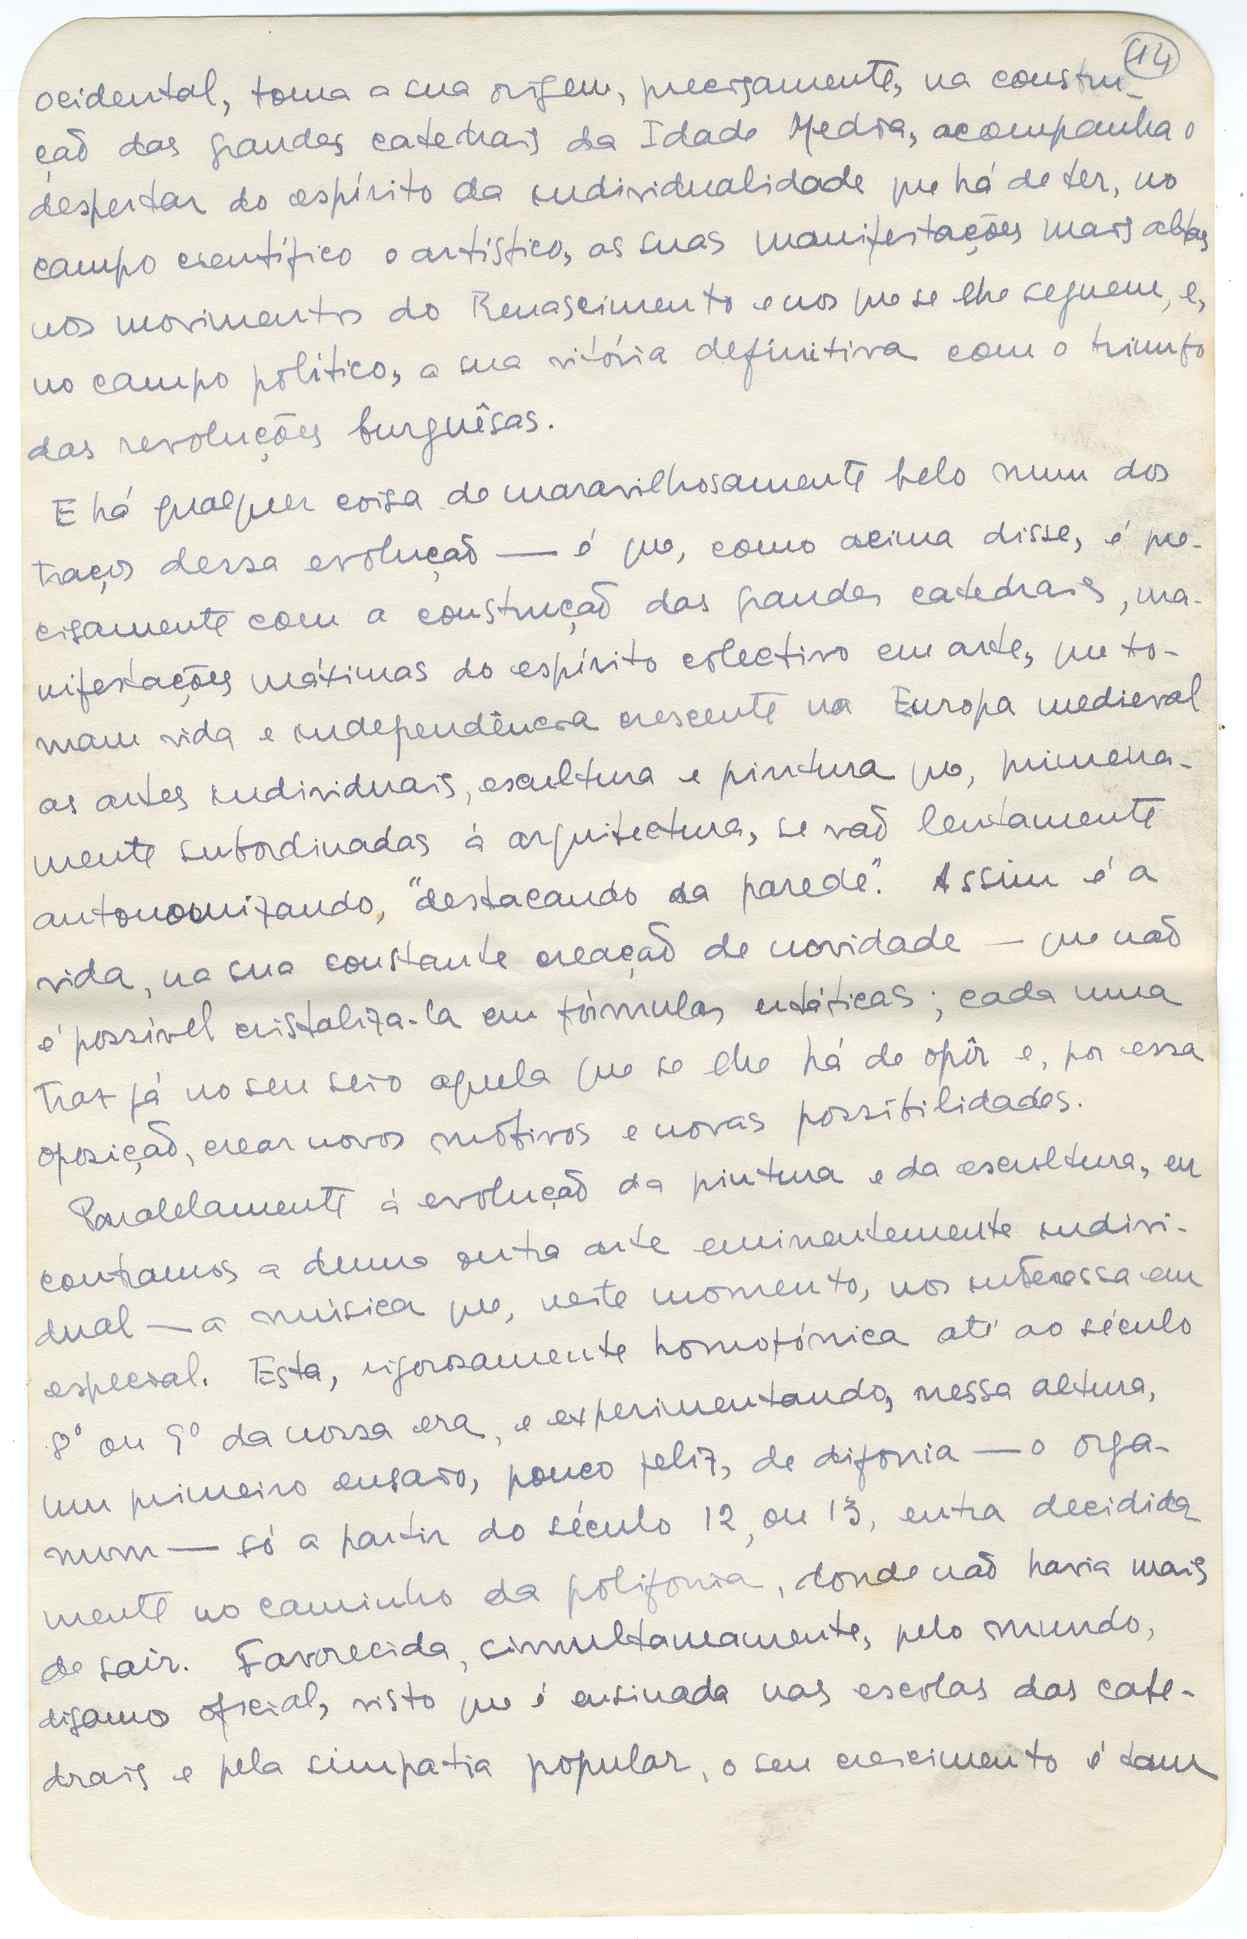 14
ocidental, toma a sua origem, precisamente, na constru-
ção das grandes catedrais da Idade Media, acompanha o
despertar do espírito da individualidade que há de ter, no
campo científico e artístico, as suas manifestações mais altas
nos movimentos do Renascimento e nos que se lhe seguem, e,
no campo político, a sua vitória definitiva com o triunfo
das revoluções burguêsas.
E há qualquer coisa de maravilhosamente belo num dos
traços dessa evolução — é que, como acima disse, é pre-
cisamente com a construção das grandes catedrais, ma-
nifestações máximas do espírito colectivo em arte, que to-
mam vida e independência crescente na Europa medieval
as artes individuais, escultura e pintura que, primeira-
mente subordinadas à arquitectura, se vão lentamente
autonomizando, "destacando da parede". Assim é a
vida, na sua constante creação de novidade — que não
é possível cristaliza-la em fórmulas estáticas; cada uma
traz já no seu seio aquela que se lhe há de opôr e, por essa
oposição, crear novos motivos e novas possibilidades.
Paralelamente à evolução da pintura e da escultura, en
contramos a duma outra arte eminentemente indivi-
dual — a música que, neste momento, nos interessa em
especial. Esta, rigorosamente homofónica até ao século
8º ou 9º da nossa era, e experimentando, nessa altura,
um primeiro ensaio, pouco feliz, de difonia — o orga-
num — só a partir do século 12, ou 13, entra decidida
mente no caminho da polifonia, donde não havia mais
de sair. Favorecida, simultaneamente, pelo mundo,
digamos oficial, visto que é ensinada nas escolas das cate-
drais e pela simpatia popular, o seu crescimento é tam